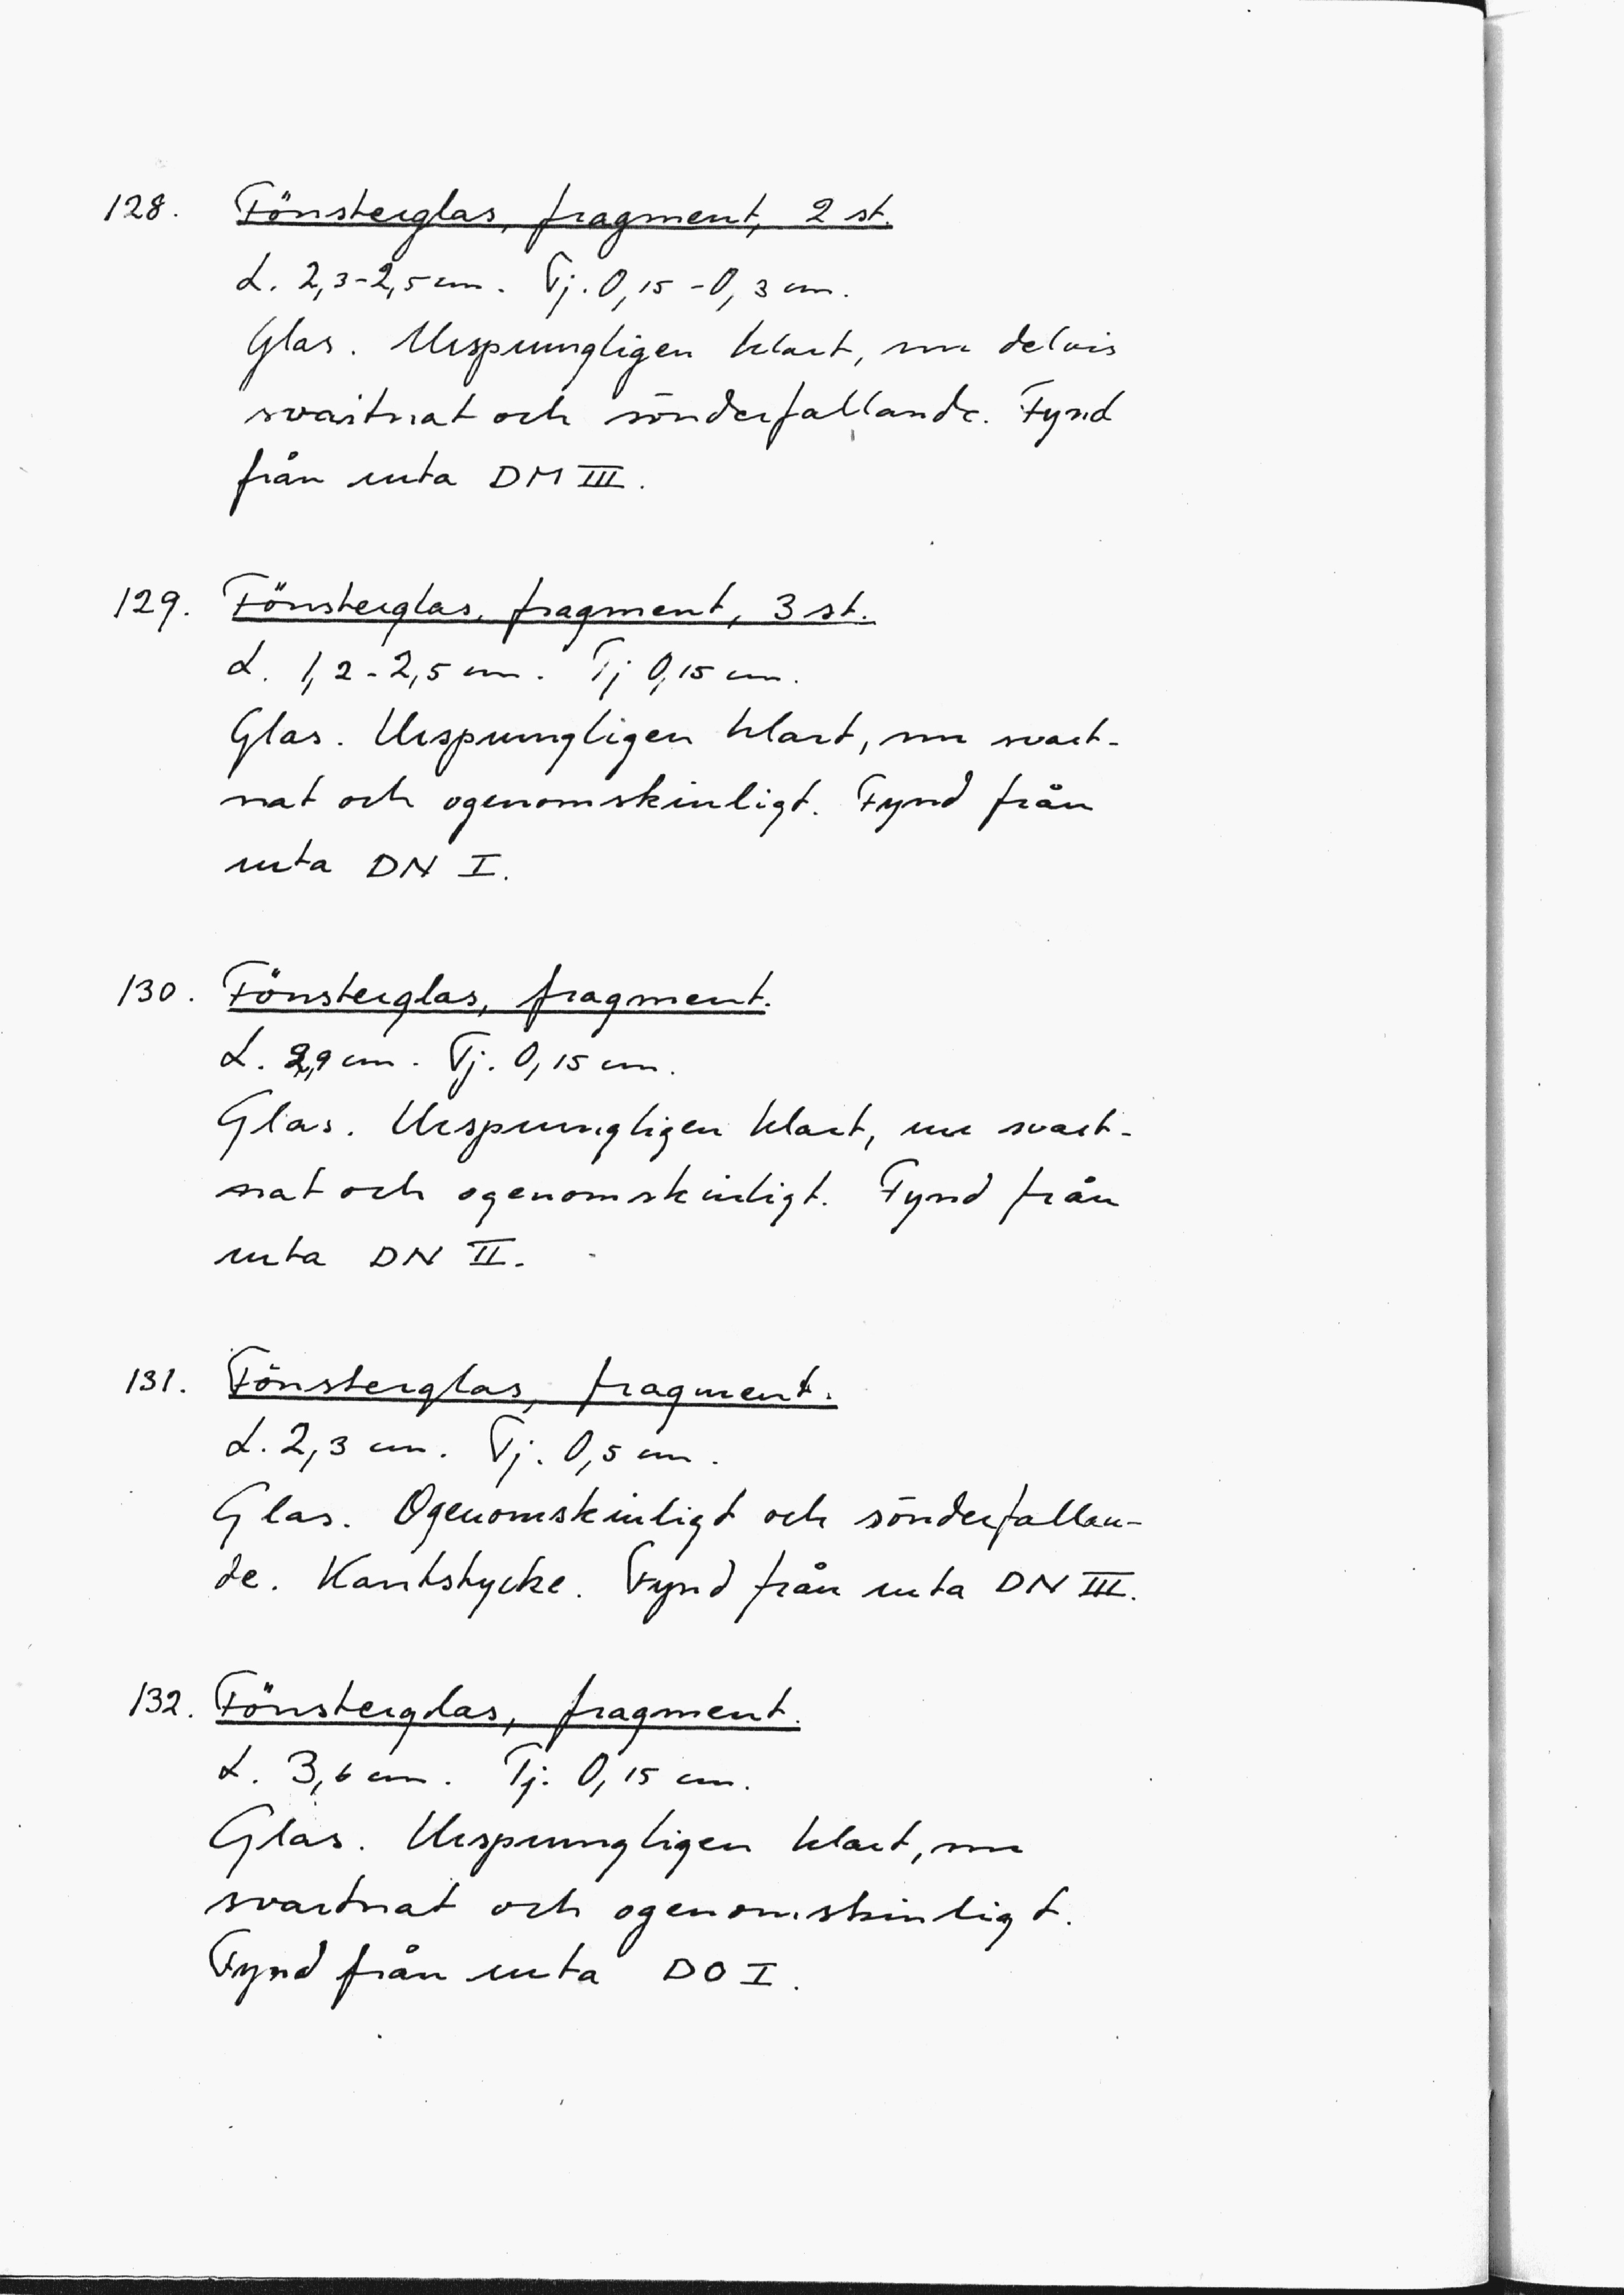 128. Fönsterglas, fragment, 2 st.
L. 2,3-2,5 cm. Tj. 0,15-0,3 cm.
Glas. Ursprungligen klart, nu delvis
svartnat och sönderfallande. Fynd
från ruta DM III.
129. Fönsterglas, fragment, 3 st.
L. 1,2-2,5 cm. Tj 0,15 cm.
Glas. Ursprungligen klart, nu svart-
nat och ogenomskinligt. Fynd från
ruta DN I.
130. Fönsterglas, fragment.
L. 2,9 cm. Tj. 0,15 cm.
Glas. Ursprungligen klart, nu svart-
nat och ogenomskinligt. Fynd från
ruta DN II.
131. Fönsterglas, fragment.
L. 2,3 cm. Tj. 0,5 cm.
Glas. Ogenomskinligt och sönderfallan-
de. Kantstycke. Fynd från ruta DN III.
132. Fönsterglas, fragment.
L. 3,6 cm. Tj. 0,15 cm.
Glas. Ursprungligen klart, nu
svartnat och ogenomskinligt.
Fynd från ruta DO I.